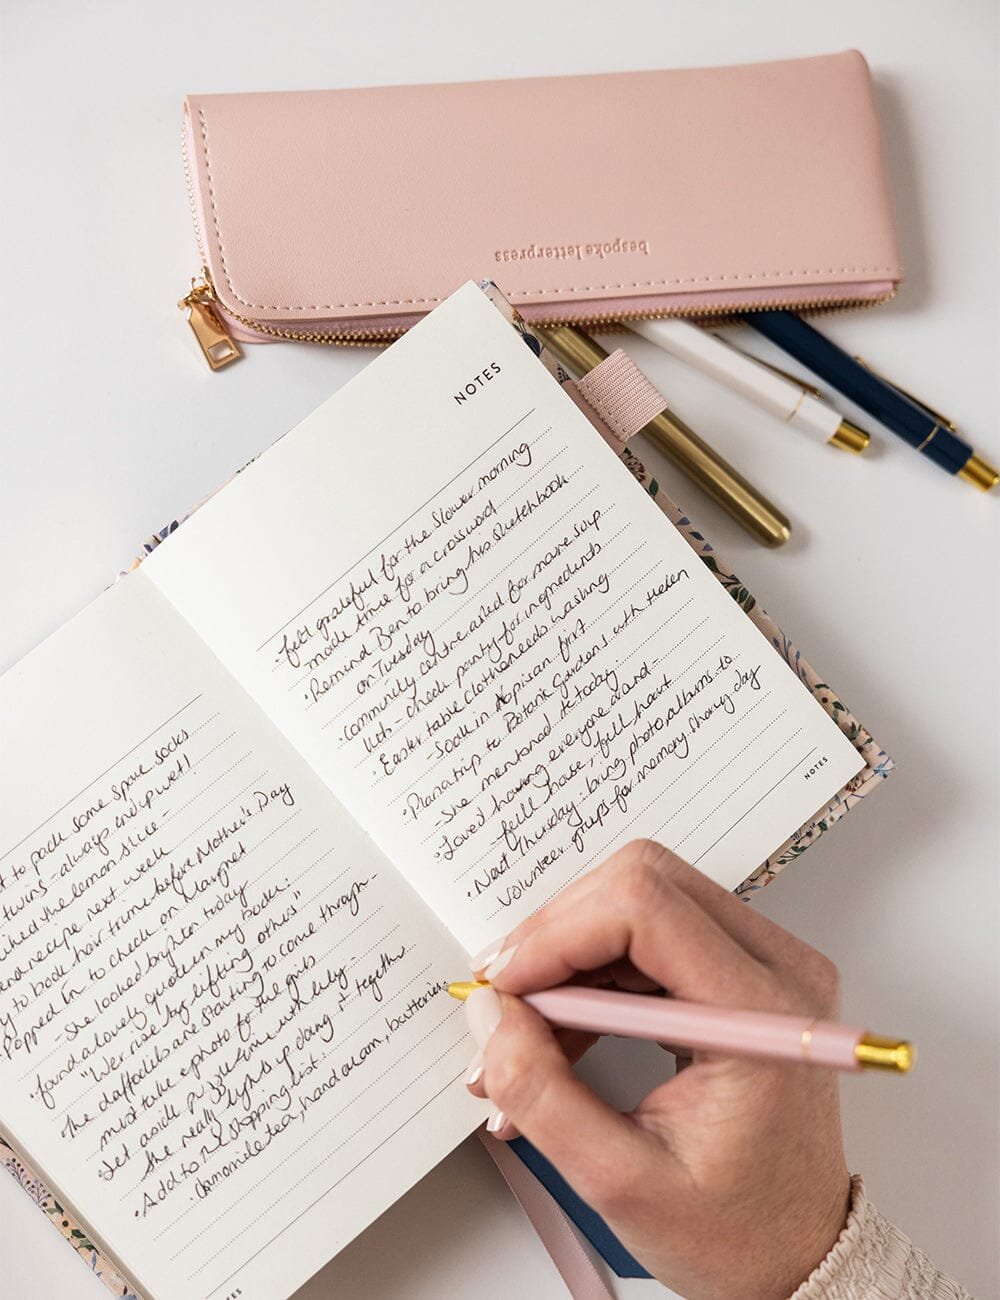 bespoke letterpress
t to pack some spare socks
twins - always end up wet!
the lemon slice -
recipe next week
to book hair trim before Mother's Day
Popped in to check on Margret
- She looked brighter today
found a lovely quote in my book:
"We rise by lifting others"
The daffodils are starting to come through -
must take a photo for the girls
Set aside puzzle time with Lily -
She really lights up doing it together
Add to shopping list:
Chamomile tea, hand cream, batteries
NOTES
felt grateful for the slower morning
made time for a crossword
Remind Ben to bring his sketchbook
on Tuesday
Community centre asked for more soup
kits - check pantry for ingredients
Easter tablecloth needs washing
- Soak in Napisan first
Plan a trip to Botanic Gardens with Helen
- She mentioned it today.
Loved having everyone around -
- full house, full heart
Next Thursday: bring photo albums to
volunteer group for memory sharing day
NOTES